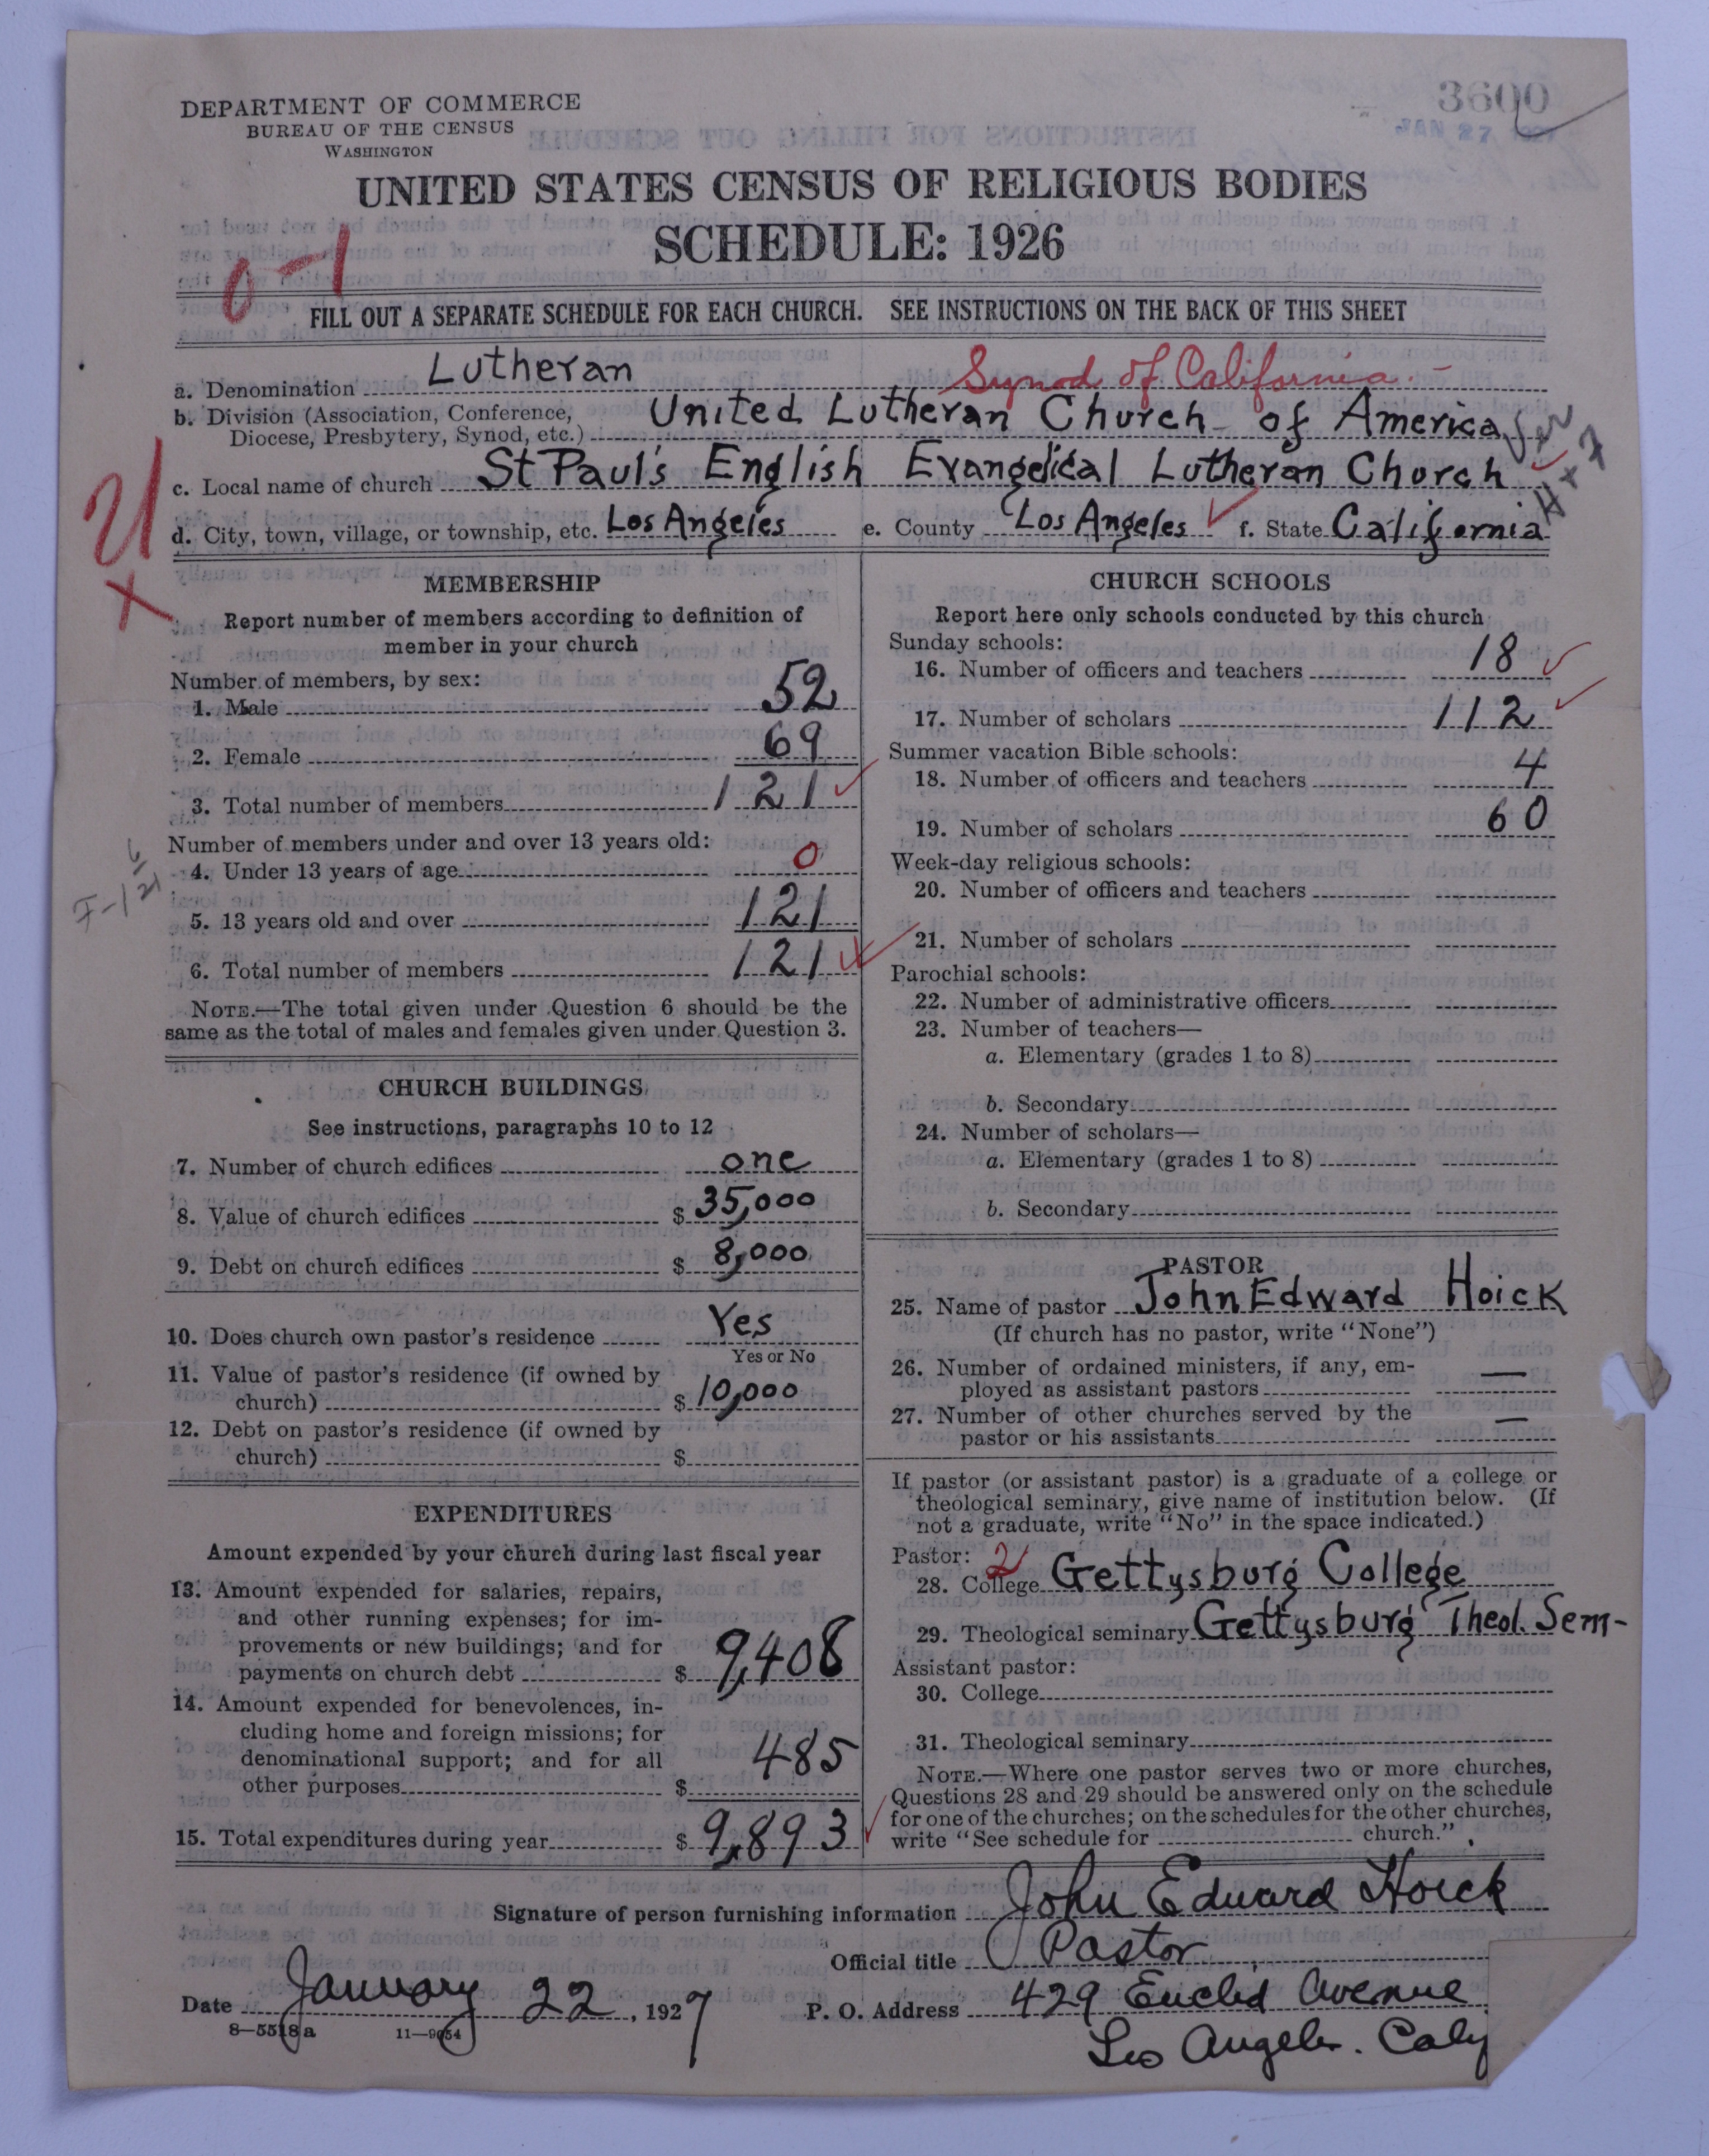 3600
DEPARTMENT OF COMMERCE
BUREAU OF THE CENSUS
WASHINGTON
JAN 27
UNITED STATES CENSUS OF RELIGIOUS BODIES
SCHEDULE: 1926
0-1
FILL OUT A SEPARATE SCHEDULE FOR EACH CHURCH. SEE INSTRUCTIONS ON THE BACK OF THIS SHEET
a. Denomination Lutheran Synod of California.-
b. Division (Association, Conference, Diocese, Presbytery, Synod, etc.) United Lutheran Church of America
c. Local name of church St Paul's English Evangelical Lutheran Church
21
X
d. City, town, village, or township, etc. Los Angeles e. County Los Angeles f. State California
MEMBERSHIP
Report number of members according to definition of
member in your church
Number of members, by sex:
1. Male 52
2. Female 69
3. Total number of members 121
Number of members under and over 13 years old:
4. Under 13 years of age 0
5. 13 years old and over 121
6. Total number of members 121
NOTE.—The total given under Question 6 should be the
same as the total of males and females given under Question 3.
CHURCH BUILDINGS
See instructions, paragraphs 10 to 12
7. Number of church edifices one
8. Value of church edifices $ 35,000
9. Debt on church edifices $ 8,000
10. Does church own pastor's residence Yes
Yes or No
11. Value of pastor's residence (if owned by
church) $ 10,000
12. Debt on pastor's residence (if owned by
church) $
EXPENDITURES
Amount expended by your church during last fiscal year
13. Amount expended for salaries, repairs,
and other running expenses; for im-
provements or new buildings; and for
payments on church debt $ 9,408
14. Amount expended for benevolences, in-
cluding home and foreign missions; for
denominational support; and for all
other purposes $ 485
15. Total expenditures during year $ 9,893
CHURCH SCHOOLS
Report here only schools conducted by this church
Sunday schools:
16. Number of officers and teachers 18
17. Number of scholars 112
Summer vacation Bible schools:
18. Number of officers and teachers 4
19. Number of scholars 60
Week-day religious schools:
20. Number of officers and teachers
21. Number of scholars
Parochial schools:
22. Number of administrative officers
23. Number of teachers—
a. Elementary (grades 1 to 8)
b. Secondary
24. Number of scholars—
a. Elementary (grades 1 to 8)
b. Secondary
PASTOR
25. Name of pastor John Edward Hoick
(If church has no pastor, write "None")
26. Number of ordained ministers, if any, em-
ployed as assistant pastors —
27. Number of other churches served by the
pastor or his assistants —
If pastor (or assistant pastor) is a graduate of a college or
theological seminary, give name of institution below. (If
not a graduate, write "No" in the space indicated.)
Pastor: 2
28. College Gettysburg College
29. Theological seminary Gettysburg Theol. Sem-
Assistant pastor:
30. College
31. Theological seminary
NOTE.—Where one pastor serves two or more churches,
Questions 28 and 29 should be answered only on the schedule
for one of the churches; on the schedules for the other churches,
write "See schedule for church."
Signature of person furnishing information John Edward Hoick
Official title Pastor
Date January 22, 1927 P. O. Address 429 Euclid Avenue
8—5518a 11—9054
Los Angeles. Calif